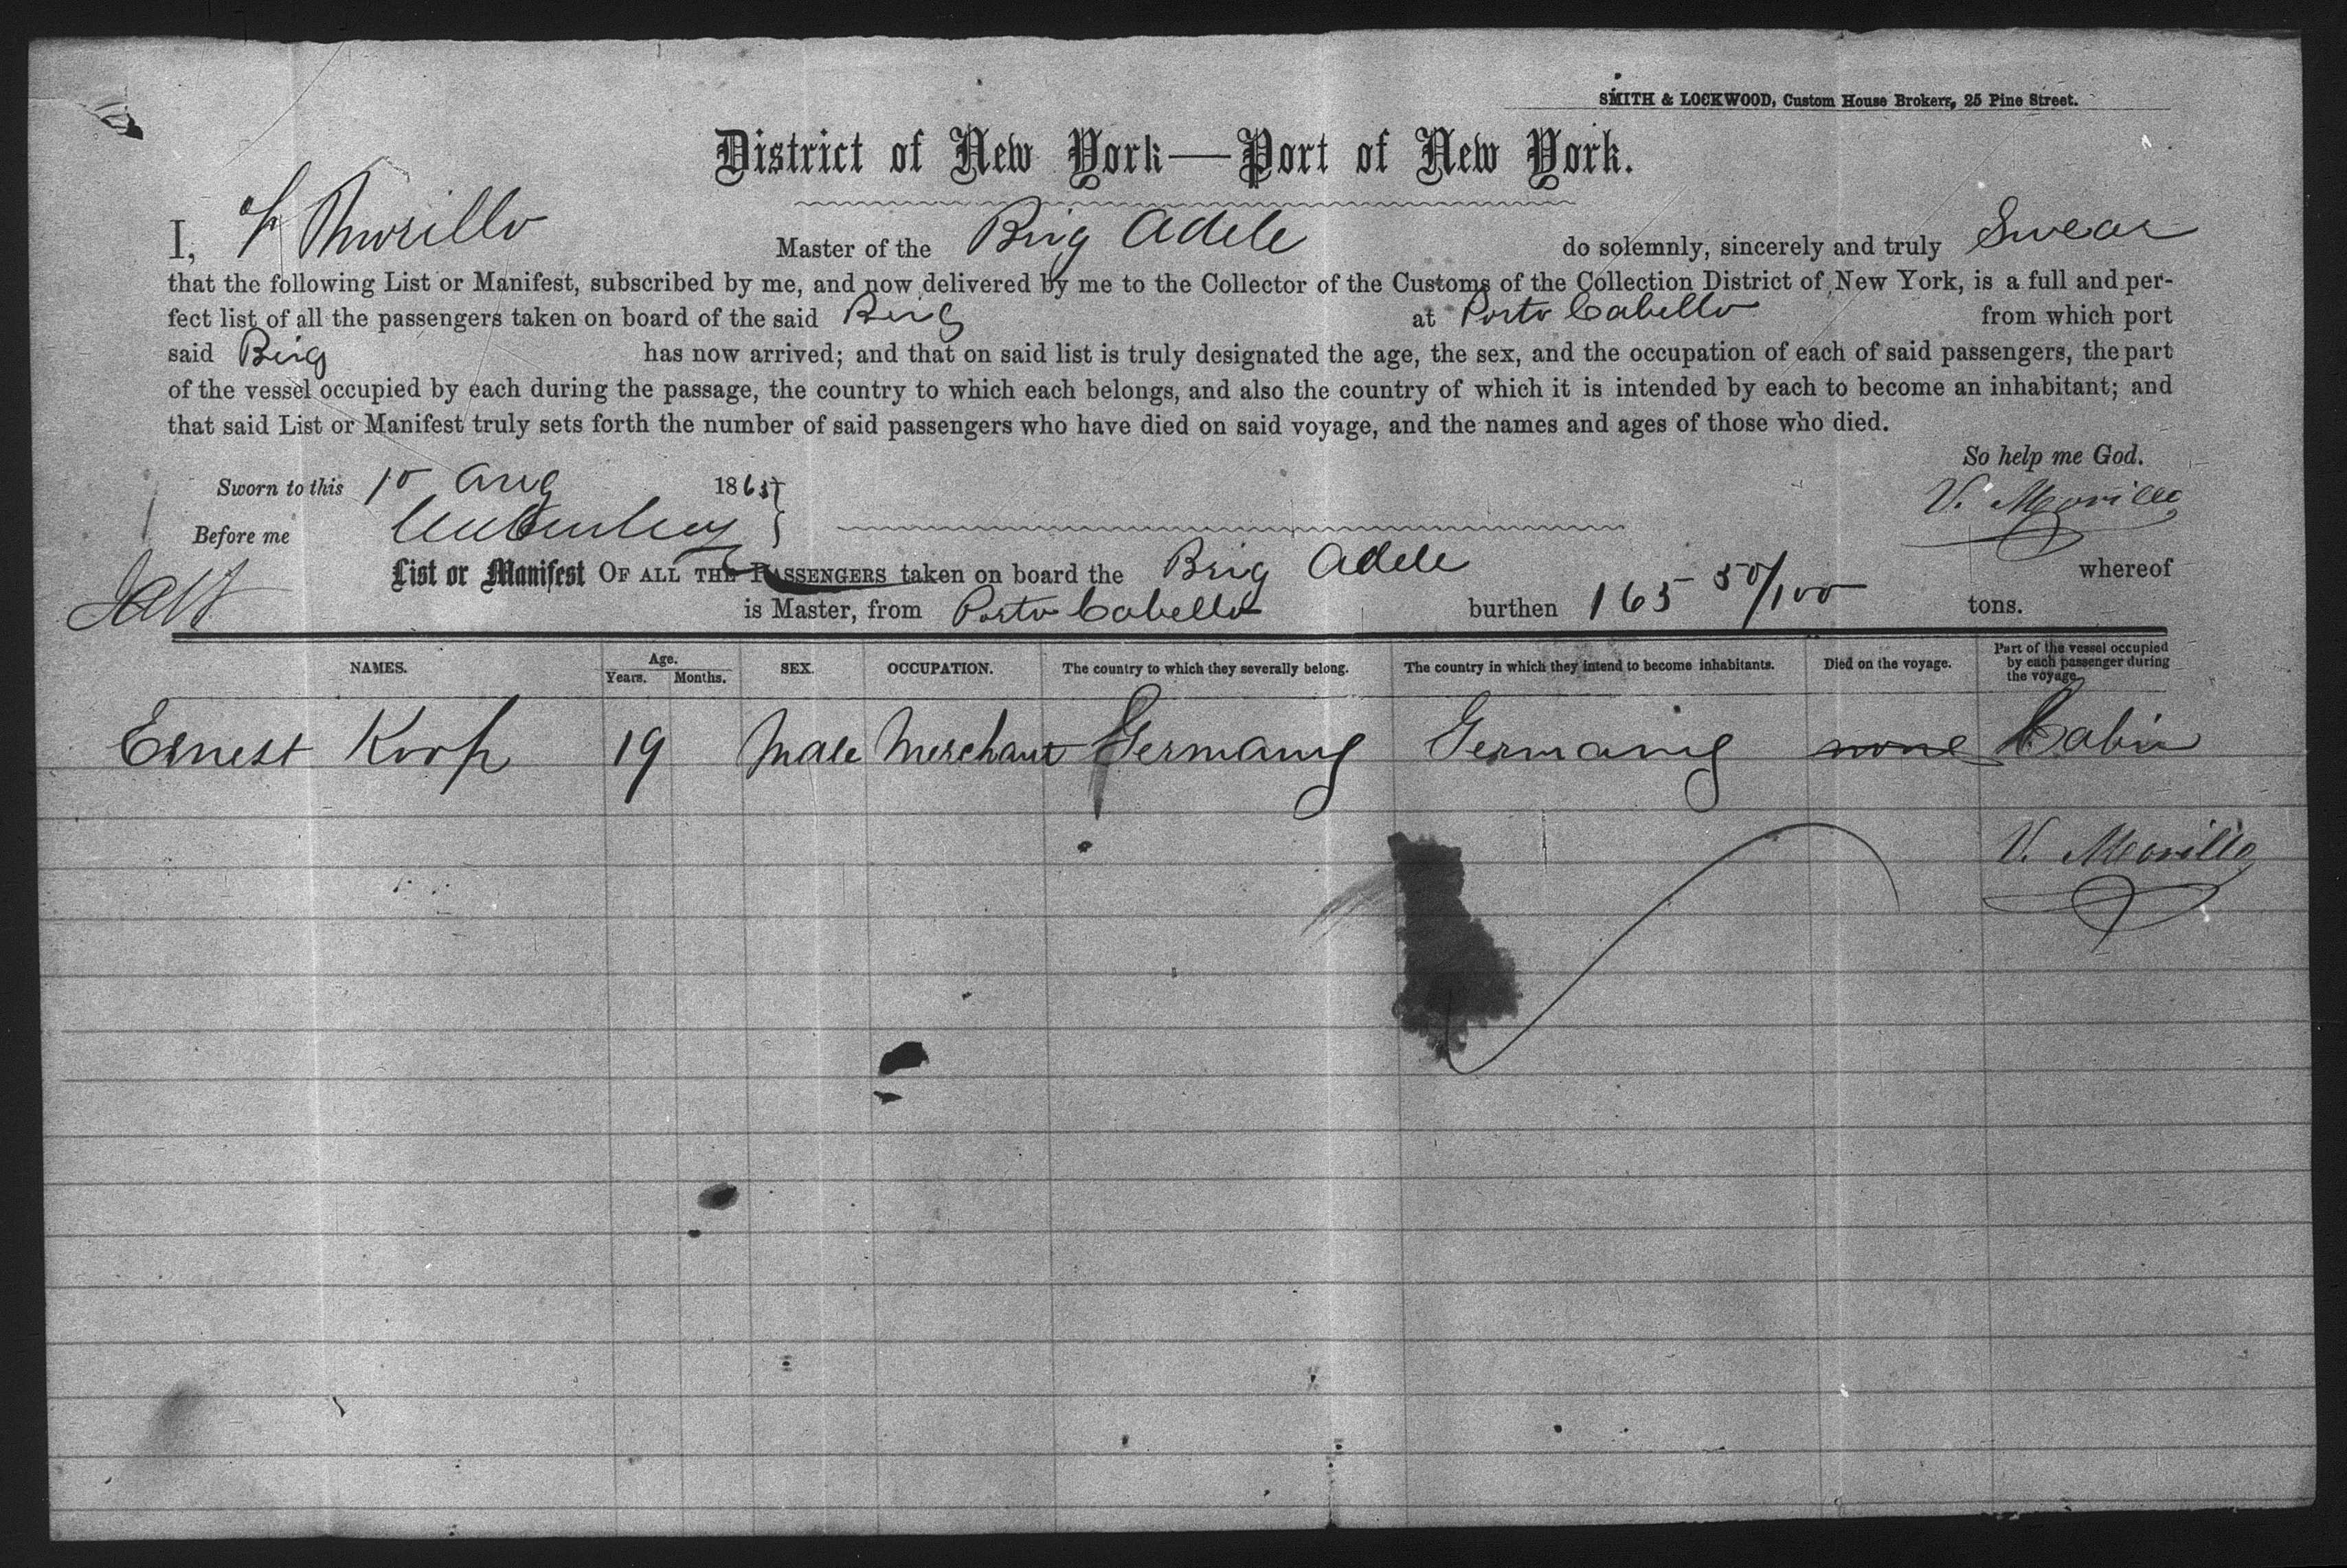 SMITH & LOCKWOOD, Custom House Brokers, 25 Pine Street.
District of New York—Port of New York.
I, Morillo Master of the Brig Adele do solemnly, sincerely and truly Swear
that the following List or Manifest, subscribed by me, and now delivered by me to the Collector of the Customs of the Collection District of New York, is a full and per-
fect list of all the passengers taken on board of the said Brig at Porto Cabello from which port
said Brig has now arrived; and that on said list is truly designated the age, the sex, and the occupation of each of said passengers, the part
of the vessel occupied by each during the passage, the country to which each belongs, and also the country of which it is intended by each to become an inhabitant; and
that said List or Manifest truly sets forth the number of said passengers who have died on said voyage, and the names and ages of those who died.
So help me God.
Sworn to this Aug 186
V. Morillo
Before me
List or Manifest OF ALL THE PASSENGERS taken on board the Brig Adele whereof
is Master, from Porto Cabello burthen 165 50/100 tons.
NAMES. Age. Years. Months. SEX. OCCUPATION. The country to which they severally belong. The country in which they intend to become inhabitants. Died on the voyage. Part of the vessel occupied by each passenger during the voyage.
Ernest Koop 19 Male Merchant Germany Germany none Cabin
V. Morillo